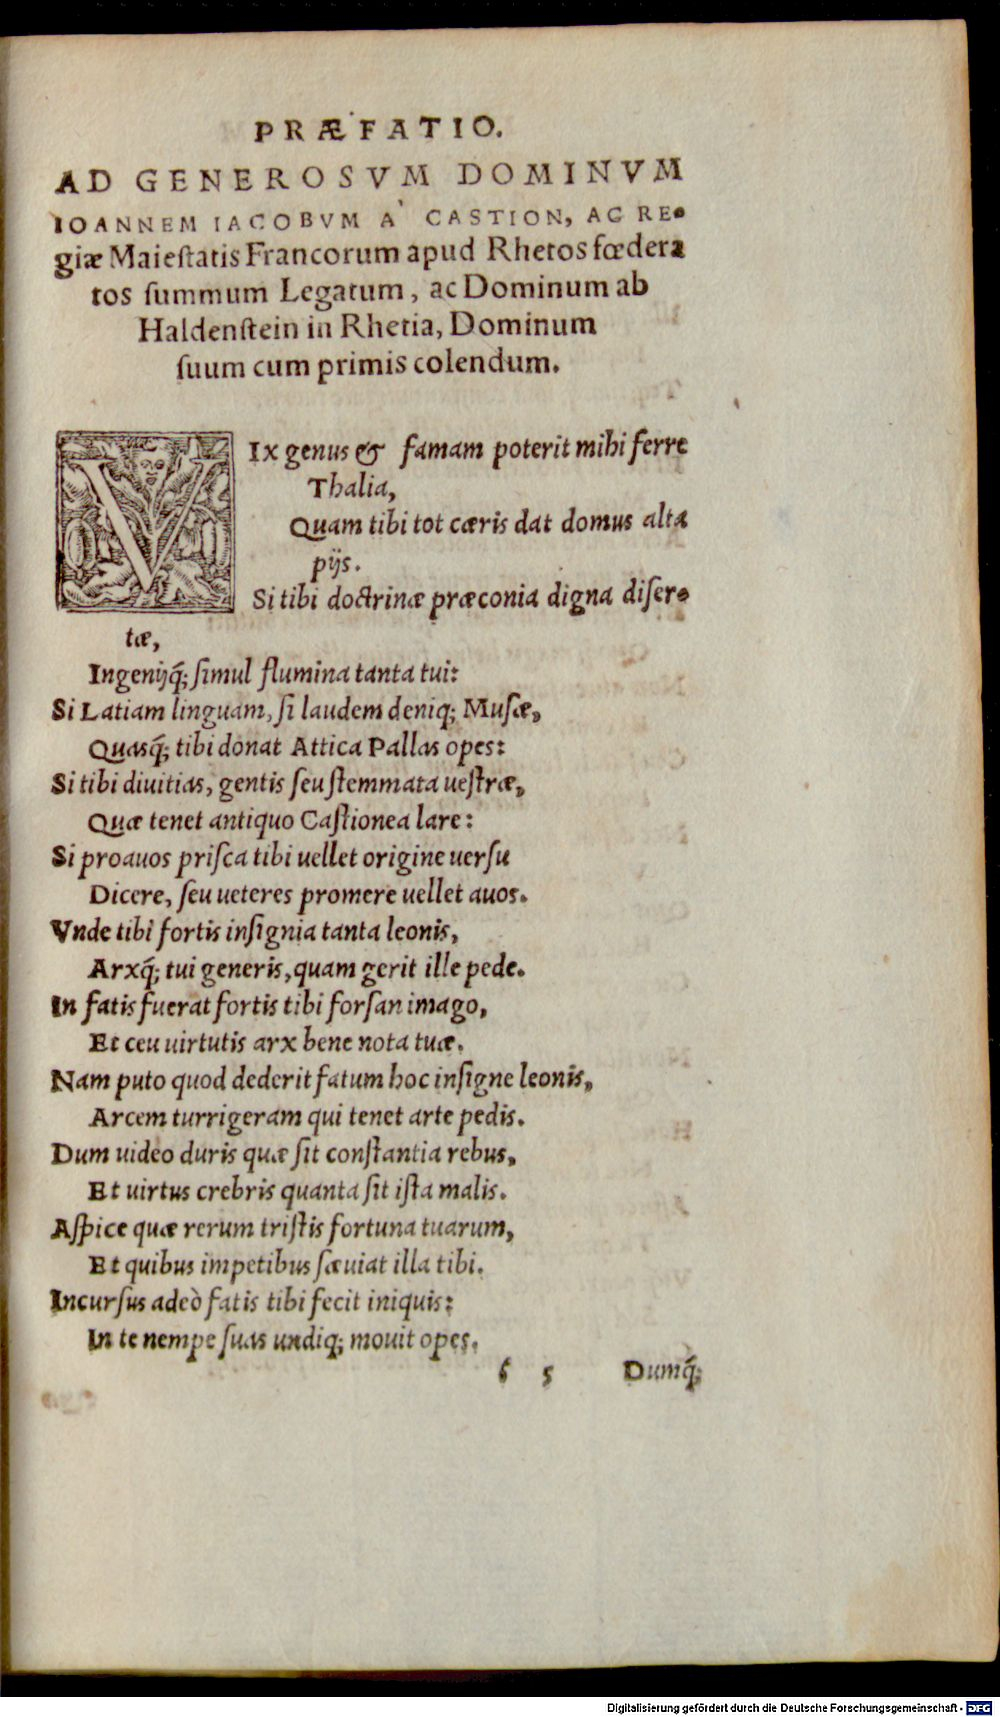 PRÆFATIO.
AD GENEROSVM DOMINVM
IOANNEM IACOBVM A' CASTION, AC RE-
giæ Maieſtatis Francorum apud Rhetos fœdera
tos ſummum Legatum, ac Dominum ab
Haldenſtein in Rhetia, Dominum
ſuum cum primis colendum.
VIx genus & famam poterit mihi ferre
Thalia,
Quam tibi tot cæris dat domus alta
pijs.
Si tibi doctrinæ præconia digna diſer-
tæ,
Ingenijq́; ſimul flumina tanta tui:
Si Latiam linguam, ſi laudem deniq; Muſæ,
Quasq́; tibi donat Attica Pallas opes:
Si tibi diuitias, gentis ſeu ſtemmata ueſtræ,
Quæ tenet antiquo Caſtionea lare:
Si proauos priſca tibi uellet origine uerſu
Dicere, ſeu ueteres promere uellet auos.
Vnde tibi fortis inſignia tanta leonis,
Arxq́; tui generis, quam gerit ille pede.
In fatis fuerat fortis tibi forſan imago,
Et ceu uirtutis arx bene nota tuæ.
Nam puto quod dederit fatum hoc inſigne leonis,
Arcem turrigeram qui tenet arte pedis.
Dum uideo duris quæ ſit conſtantia rebus,
Et uirtus crebris quanta ſit iſta malis.
Aſpice quæ rerum triſtis fortuna tuarum,
Et quibus impetibus ſæuiat illa tibi.
Incurſus adeò fatis tibi fecit iniquis:
In te nempe ſuas undiq; mouit opes.
6 5 Dumq́;
Digitalisierung gefördert durch die Deutsche Forschungsgemeinschaft - DFG